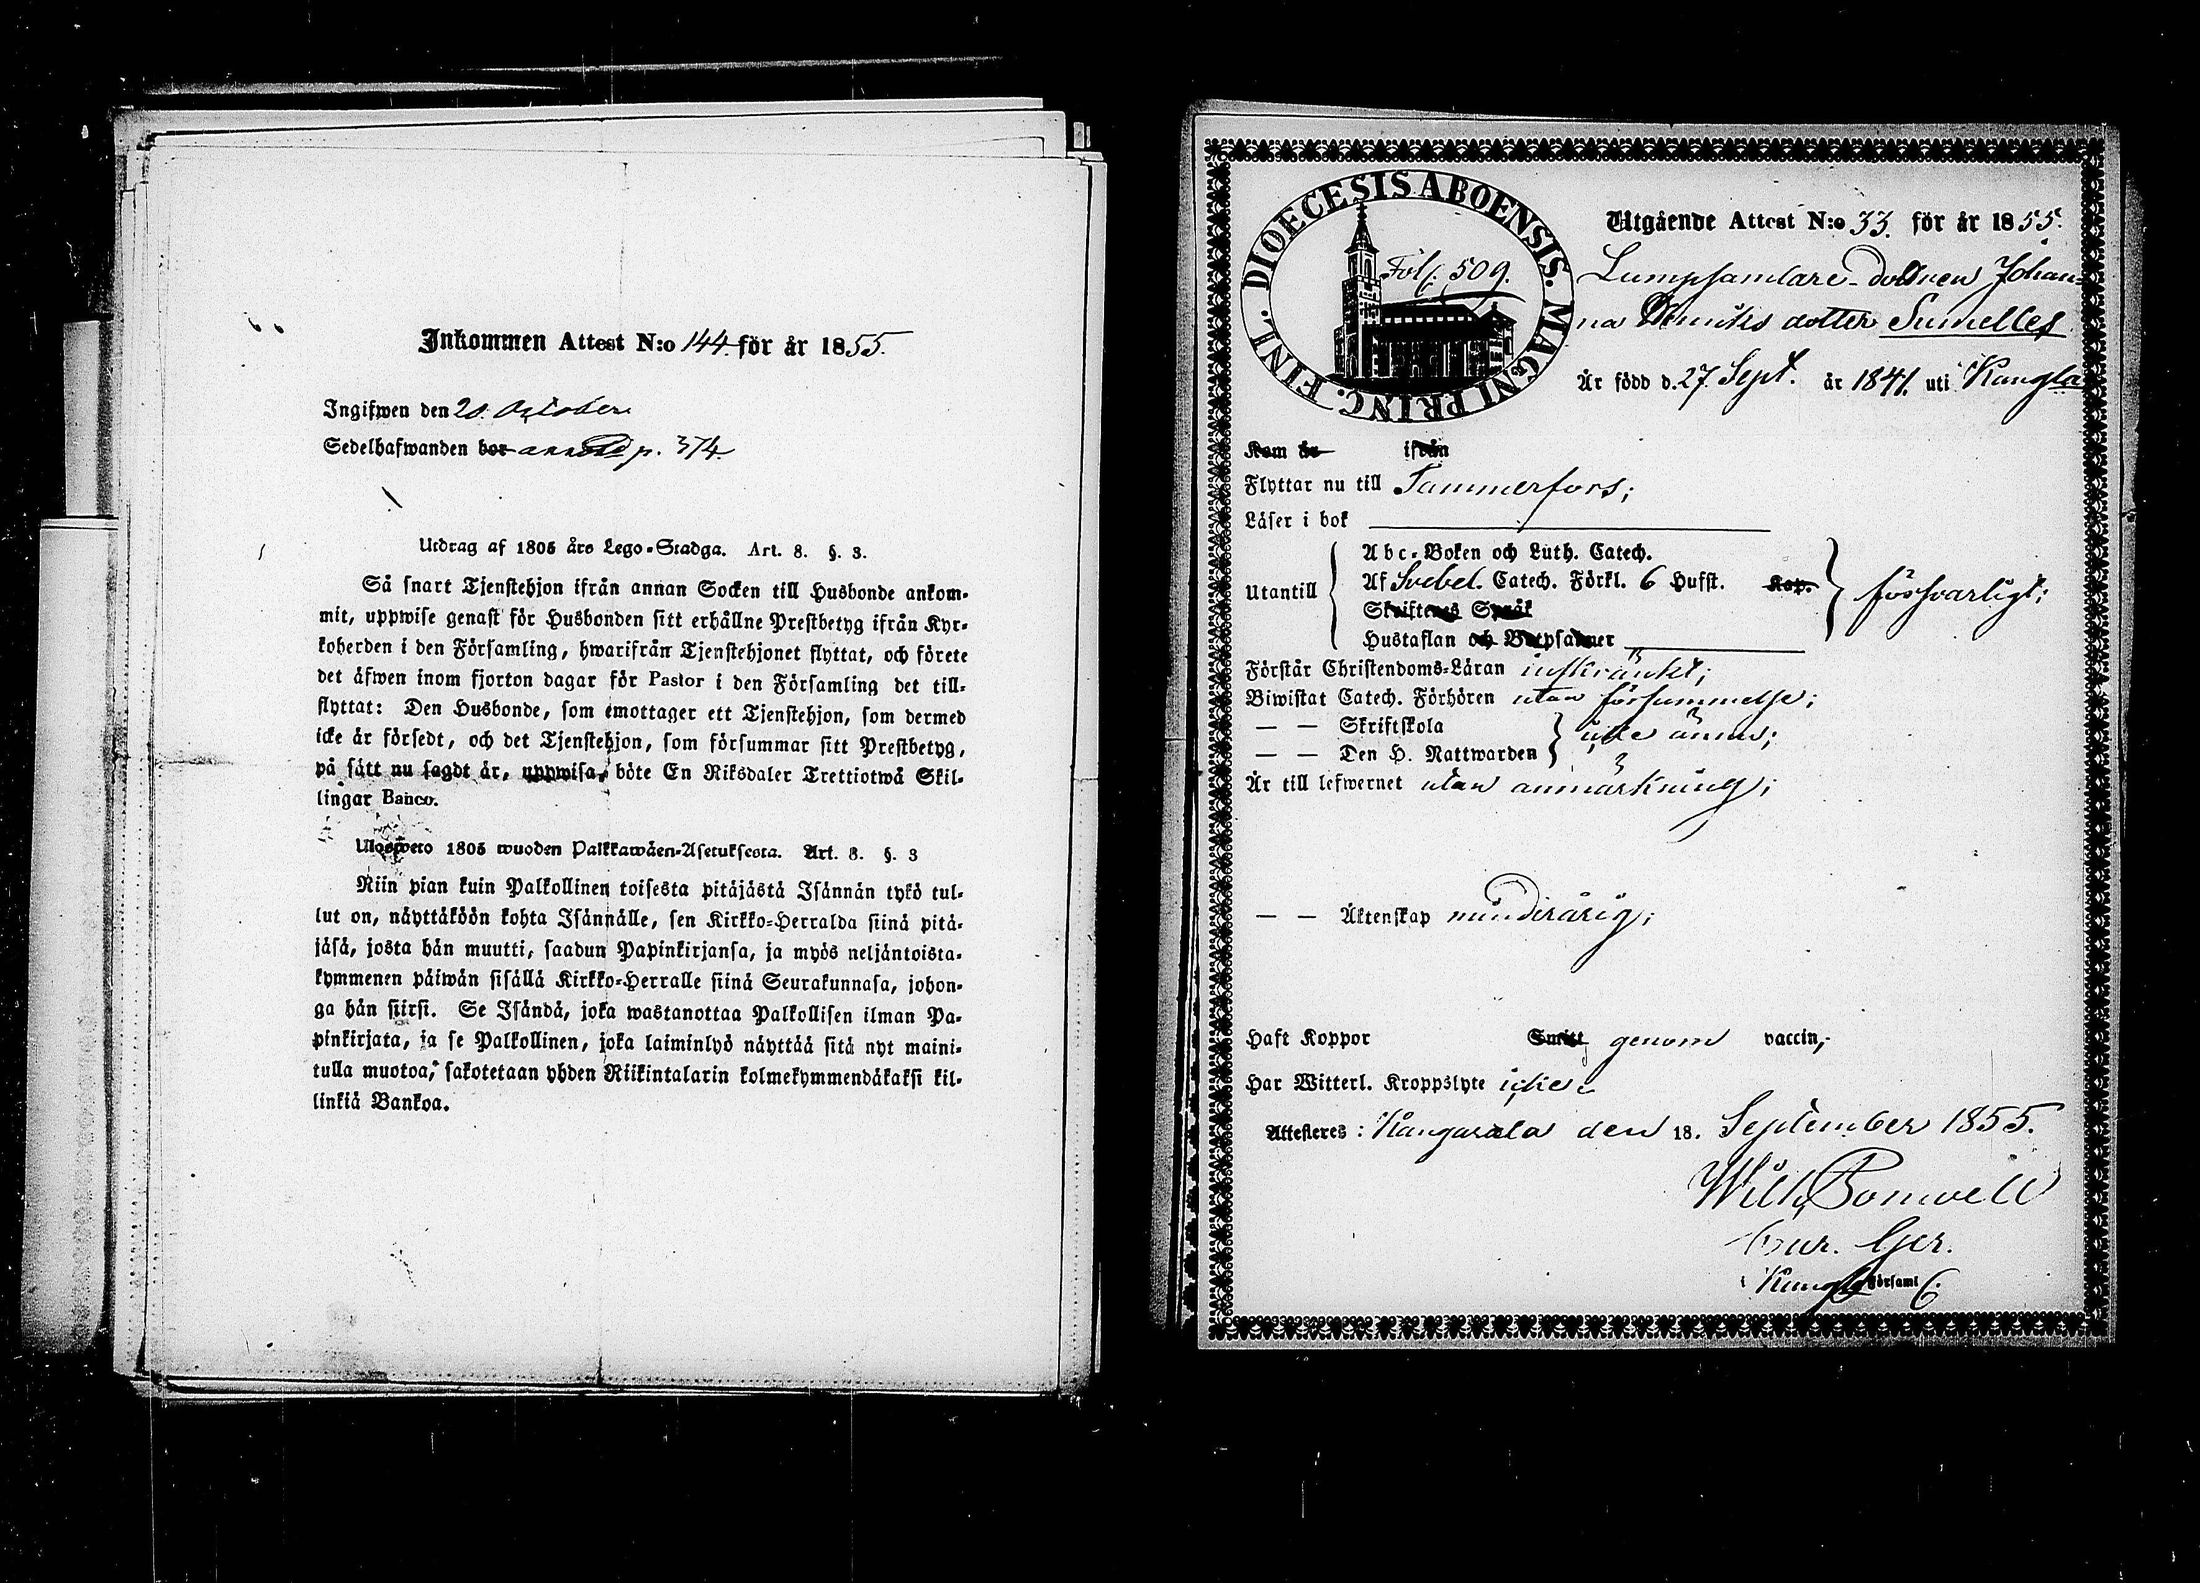 Inkommen Attest N:o 144. för år 1855.
Ingifwen den 20. October
Sedelhafwanden bor p. 374.
Utdrag af 1805 års Lego-Stadga. Art. 8. §. 3.
Så snart Tjenstehjon ifrån annan Socken till Husbonde ankom-
mit, uppwise genast för Husbonden sitt erhållne Prestbetyg ifrån Kyr-
koherden i den Församling, hwarifrån Tjenstehjonet flyttat, och förete
det äfwen inom fjorton dagar för Pastor i den Församling det till-
flyttat: Den Husbonde, som emottager ett Tjenstehjon, som dermed
icke är försedt, och det Tjenstehjon, som försummar sitt Prestbetyg,
på sätt nu sagdt är, uppwisa, böte En Riksdaler Trettiotwå Skil-
lingar Banco.
Ulosweto 1805 wuoden Palkkawäen-Asetuksesta. Art. 8. §. 3
Niin pian kuin Palkollinen toisesta pitäjästä Isännän tykö tul-
lut on, näyttäköön kohta Isännälle, sen Kirkko-Herralda siinä pitä-
jäsä, josta hän muutti, saadun Papinkirjansa, ja myös neljäntoista-
kymmenen päiwän sisällä Kirkko-Herralle siinä Seurakunnasa, johon-
ga hän siirsi. Se Isändä, joka wastanottaa Palkollisen ilman Pa-
pinkirjata, ja se Palkollinen, joka laiminlyö näyttää sitä nyt maini-
tulla muotoa, sakotetaan yhden Riikintalarin kolmekymmendäkaksi kil-
linkiä Bankoa.
DIOECESIS ABOENSIS. MAGNI PRINC. FINL.
Fol. 509.
Utgående Attest N:o 33. för år 1855.
Lumpsamlare-dottren Johan-
na dotter
Är född d. 27. Sept. år 1841. uti Kangla
Kom år ifrån
Flyttar nu till Tammerfors;
Läser i bok
Utantill
Abc-Boken och Luth. Catech.
Af Svebel. Catech. Förkl. 6 Hufst. Kap.
Skriftenes Språk
Hustaflan och Botpsalmer
försvarligt;
Förstår Christendoms-Läran inskränkt;
Biwistat Catech. Förhören utan försummelse;
— — Skriftskola
— — Den H. Nattwarden
icke ännu;
Är till lefwernet utan anmärkning;
— — Äktenskap minderårig;
Haft Koppor Smitt genom vaccin;
Har Witterl. Kroppslyte icke.
Attesteres: Kangasala den 18. September 1855.
Wilh. Bonwell
i Kangla Församl